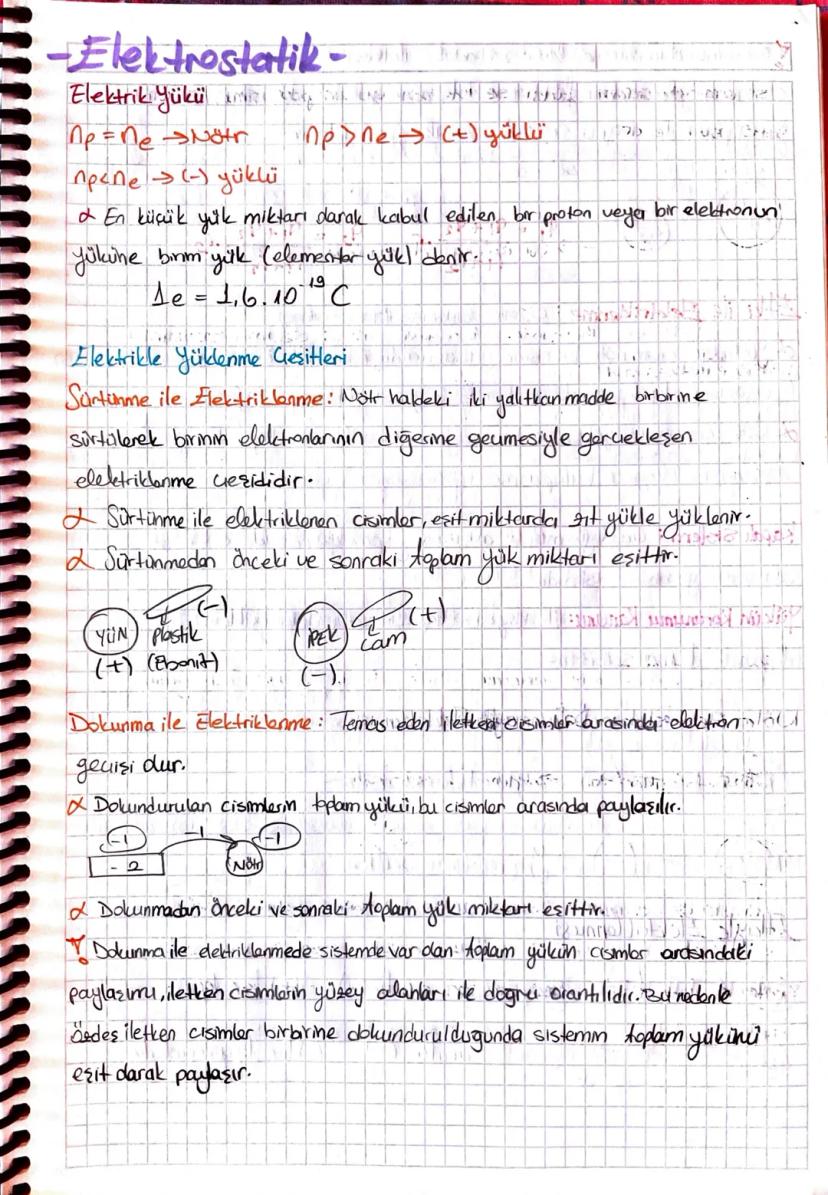 -Elektrostatik-
Elektrik Yükü
np = ne → Nötr   np > ne → (+) yüklü
np < ne → (-) yüklü
α En küçük yük miktarı olarak kabul edilen, bir proton veya bir elektronun
yüküne birim yük (elementer yük) denir.
1e = 1,6.10⁻¹⁹ C
Elektrikle Yüklenme Çeşitleri
Sürtünme ile Elektriklenme: Nötr haldeki iki yalıtkan madde birbirine
sürtülerek birinin elektronlarının diğerine geçmesiyle gerçekleşen
elektriklenme çeşididir.
α Sürtünme ile elektriklenen cisimler, eşit miktarda zıt yükle yüklenir.
α Sürtünmeden önceki ve sonraki toplam yük miktarı eşittir.
(-) (+)
YÜN Plastik İPEK Cam
(+) (Ebonit) (-)
Dokunma ile Elektriklenme: Temas eden iletken cisimler arasında elektron
geçişi dur.
α Dokundurulan cisimlerin toplam yükü, bu cisimler arasında paylaşılır.
-1 -1 -1
-2 Nötr
α Dokunmadan önceki ve sonraki toplam yük miktarı eşittir.
! Dokunma ile elektriklenmede sistemde var olan toplam yükün cisimler arasındaki
paylaşımı, iletken cisimlerin yüzey alanları ile doğru orantılıdır. Bu nedenle
özdeş iletken cisimler birbirine dokundurulduğunda sistemin toplam yükünü
eşit olarak paylaşır.